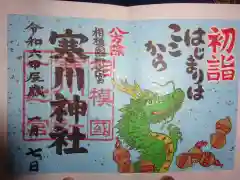 初詣
はじまりは
ここから
八方除
相模國一之宮
相模國
寒川神社
令和六甲辰歳
一月七日